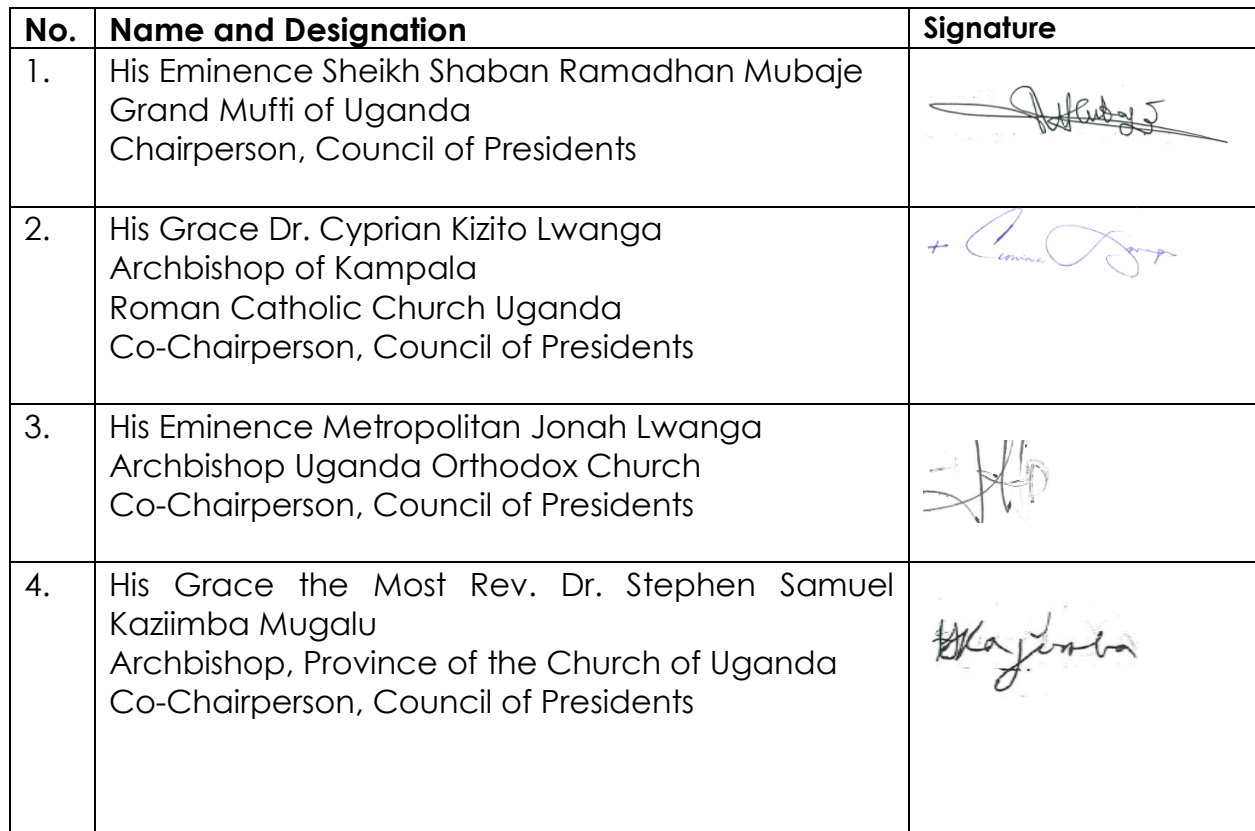 No. Name and Designation Signature
1. His Eminence Sheikh Shaban Ramadhan Mubaje
Grand Mufti of Uganda
Chairperson, Council of Presidents
2. His Grace Dr. Cyprian Kizito Lwanga
Archbishop of Kampala
Roman Catholic Church Uganda
Co-Chairperson, Council of Presidents
3. His Eminence Metropolitan Jonah Lwanga
Archbishop Uganda Orthodox Church
Co-Chairperson, Council of Presidents
4. His Grace the Most Rev. Dr. Stephen Samuel
Kaziimba Mugalu
Archbishop, Province of the Church of Uganda
Co-Chairperson, Council of Presidents